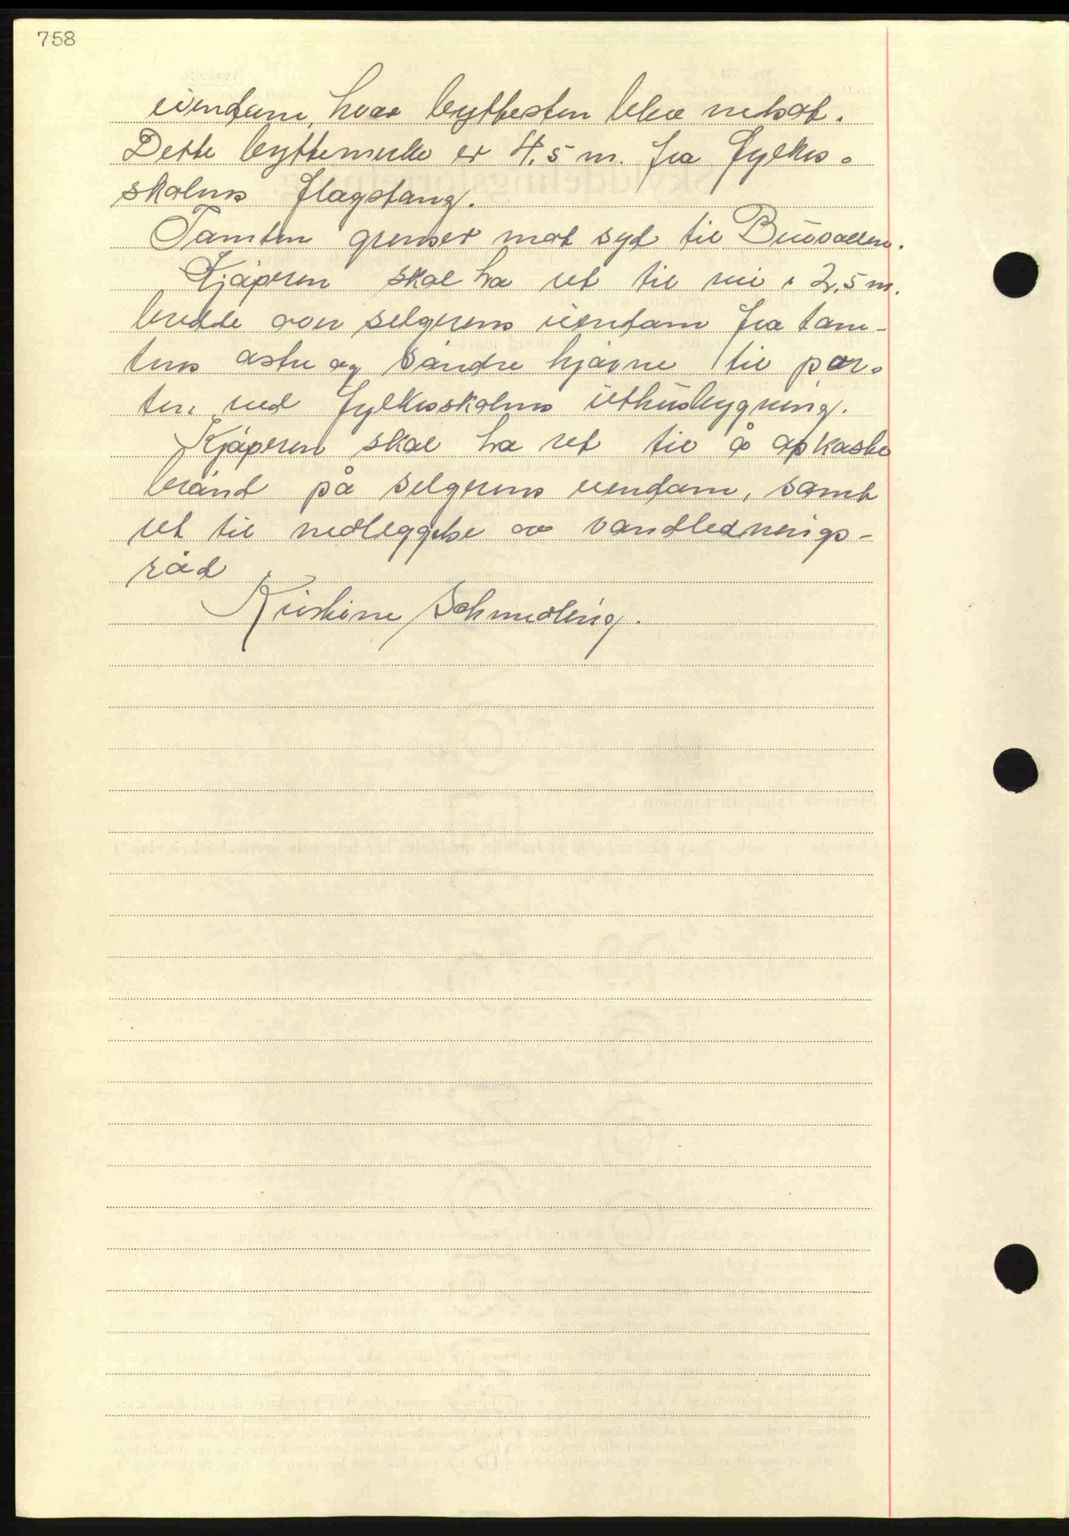 758
eiendom, hvor byttesten blev nedsat.
Dette byttemerke er 4,5 m. fra fylkes-
skolens flagstang.
Tomten grenser mot syd til
Kjøperen skal ha ret til vei i 2,5 m.
bredde over selgerens eiendom fra tom-
tens østre og søndre hjørne til por-
ten ved fylkesskolens uthusbygning.
Kjøperen skal ha ret til å opkaste
brønd på selgerens eiendom, samt
ret til nedleggelse av vandlednings-
rør
Kristine Schmedling.